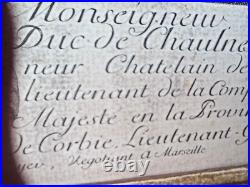 Monseigneur
Duc de Chaulne
neur Chatelain de
lieutenant de la Com
Majeste en la Provin
de Corbie, Lieutenant
yer, Negotiant A Marseille